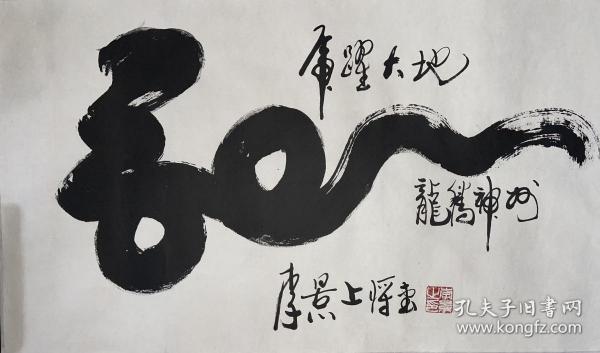 虎躍大地
龍騰神州
李景上将書
孔夫子旧书网
www.kongfz.com